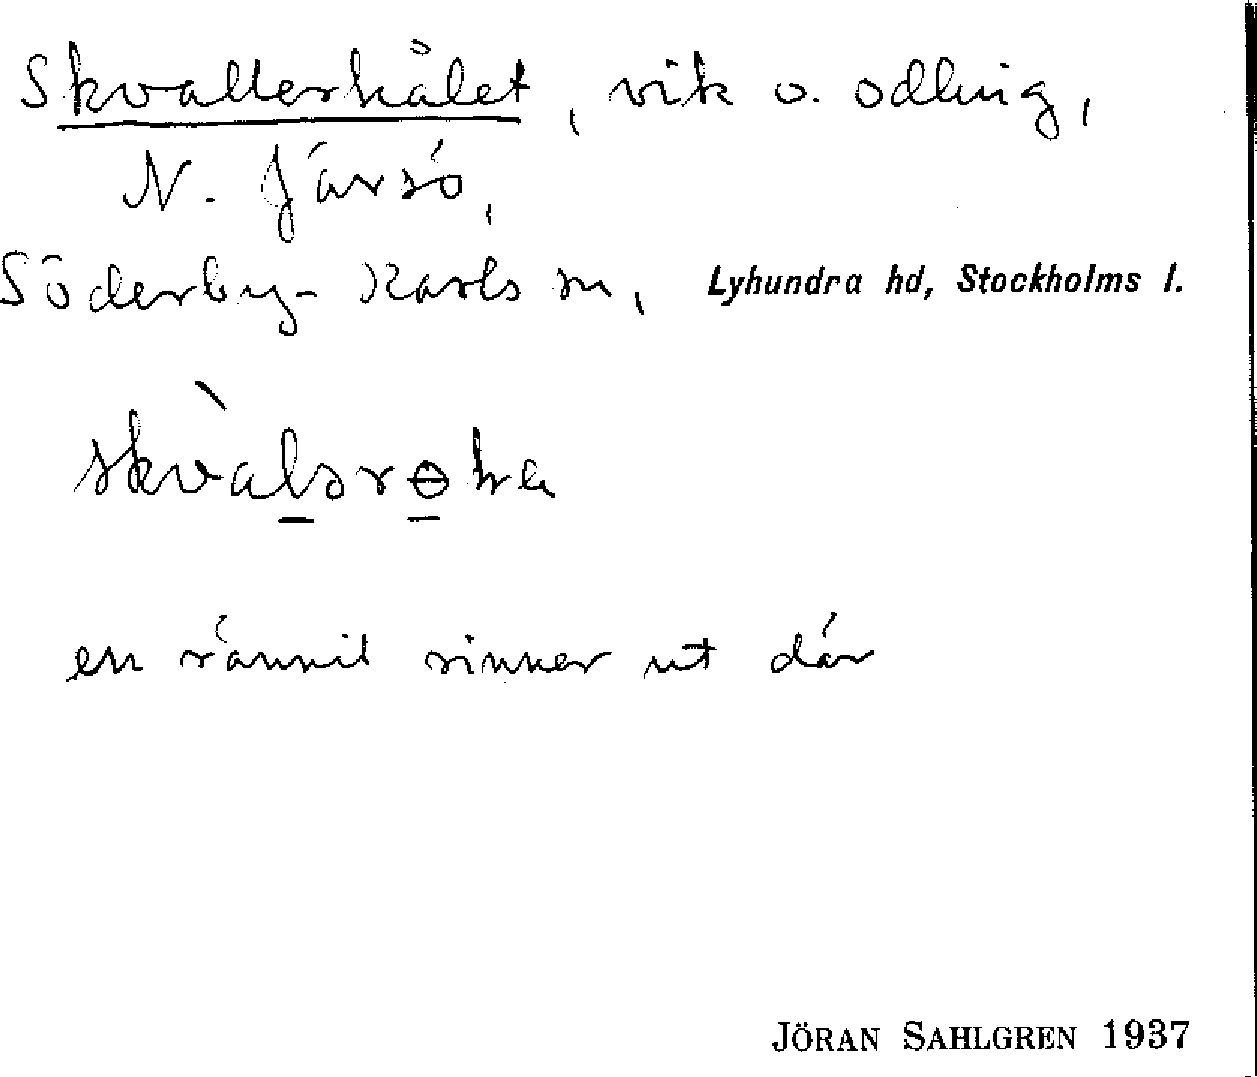 Skvallerhålet, vik o. odling,
N. Järsö,
Söderby-Karls sn, Lyhundra hd, Stockholms l.
en rännil rinner ut där
JÖRAN SAHLGREN 1937